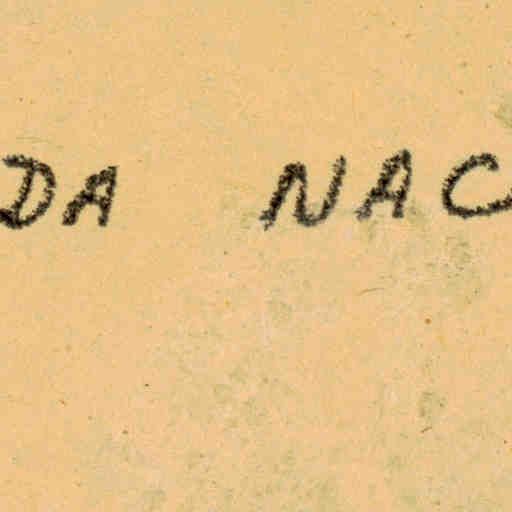 DA NAC